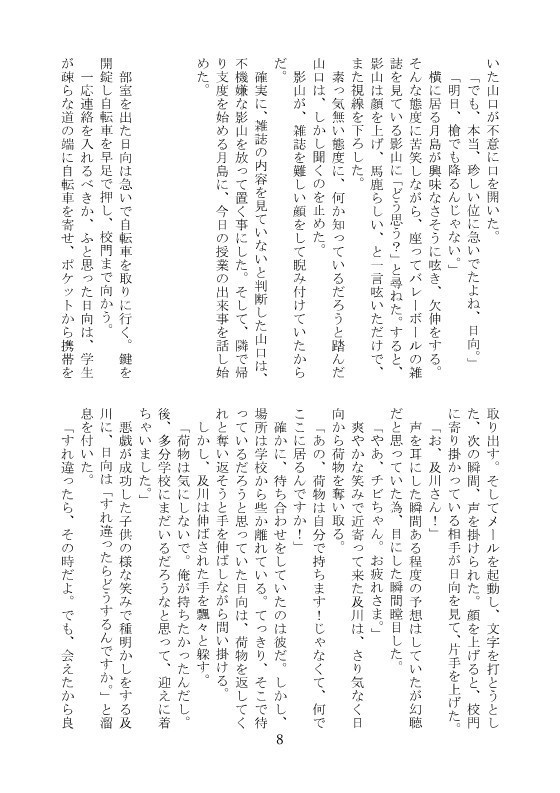 いた山口が不意に口を開いた。
「でも、本当、珍しい位に急いでたよね、日向。」
「明日、槍でも降るんじゃない。」
横に居る月島が興味なさそうに呟き、欠伸をする。
そんな態度に苦笑しながら、座ってバレーボールの雑
誌を見ている影山に「どう思う？」と尋ねた。すると、
影山は顔を上げ、馬鹿らしい、と一言呟いただけで、
また視線を下ろした。
素っ気無い態度に、何か知っているだろうと踏んだ
山口は、しかし聞くのを止めた。
影山が、雑誌を難しい顔をして睨み付けていたから
だ。
確実に、雑誌の内容を見ていないと判断した山口は、
不機嫌な影山を放って置く事にした。そして、隣で帰
り支度を始める月島に、今日の授業の出来事を話し始
めた。
部室を出た日向は急いで自転車を取りに行く。鍵を
開錠し自転車を早足で押し、校門まで向かう。
一応連絡を入れるべきか、ふと思った日向は、学生
が疎らな道の端に自転車を寄せ、ポケットから携帯を
取り出す。そしてメールを起動し、文字を打とうとし
た、次の瞬間、声を掛けられた。顔を上げると、校門
に寄り掛かっている相手が日向を見て、片手を上げた。
「お、及川さん！」
声を耳にした瞬間ある程度の予想はしていたが幻聴
だと思っていた為、目にした瞬間瞠目した。
「やあ、チビちゃん。お疲れさま。」
爽やかな笑みで近寄って来た及川は、さり気なく日
向から荷物を奪い取る。
「あの、荷物は自分で持ちます！じゃなくて、何で
ここに居るんですか！」
確かに、待ち合わせをしていたのは彼だ。しかし、
場所は学校から些か離れている。てっきり、そこで待
っているだろうと思っていた日向は、荷物を返してく
れと奪い返そうと手を伸ばしながら問い掛ける。
しかし、及川は伸ばされた手を飄々と躱す。
「荷物は気にしないで。俺が持ちたかったんだし。
後、多分学校にまだいるだろうなと思って、迎えに着
ちゃいました。」
悪戯が成功した子供の様な笑みで種明かしをする及
川に、日向は「すれ違ったらどうするんですか。」と溜
息を付いた。
「すれ違ったら、その時だよ。でも、会えたから良
8